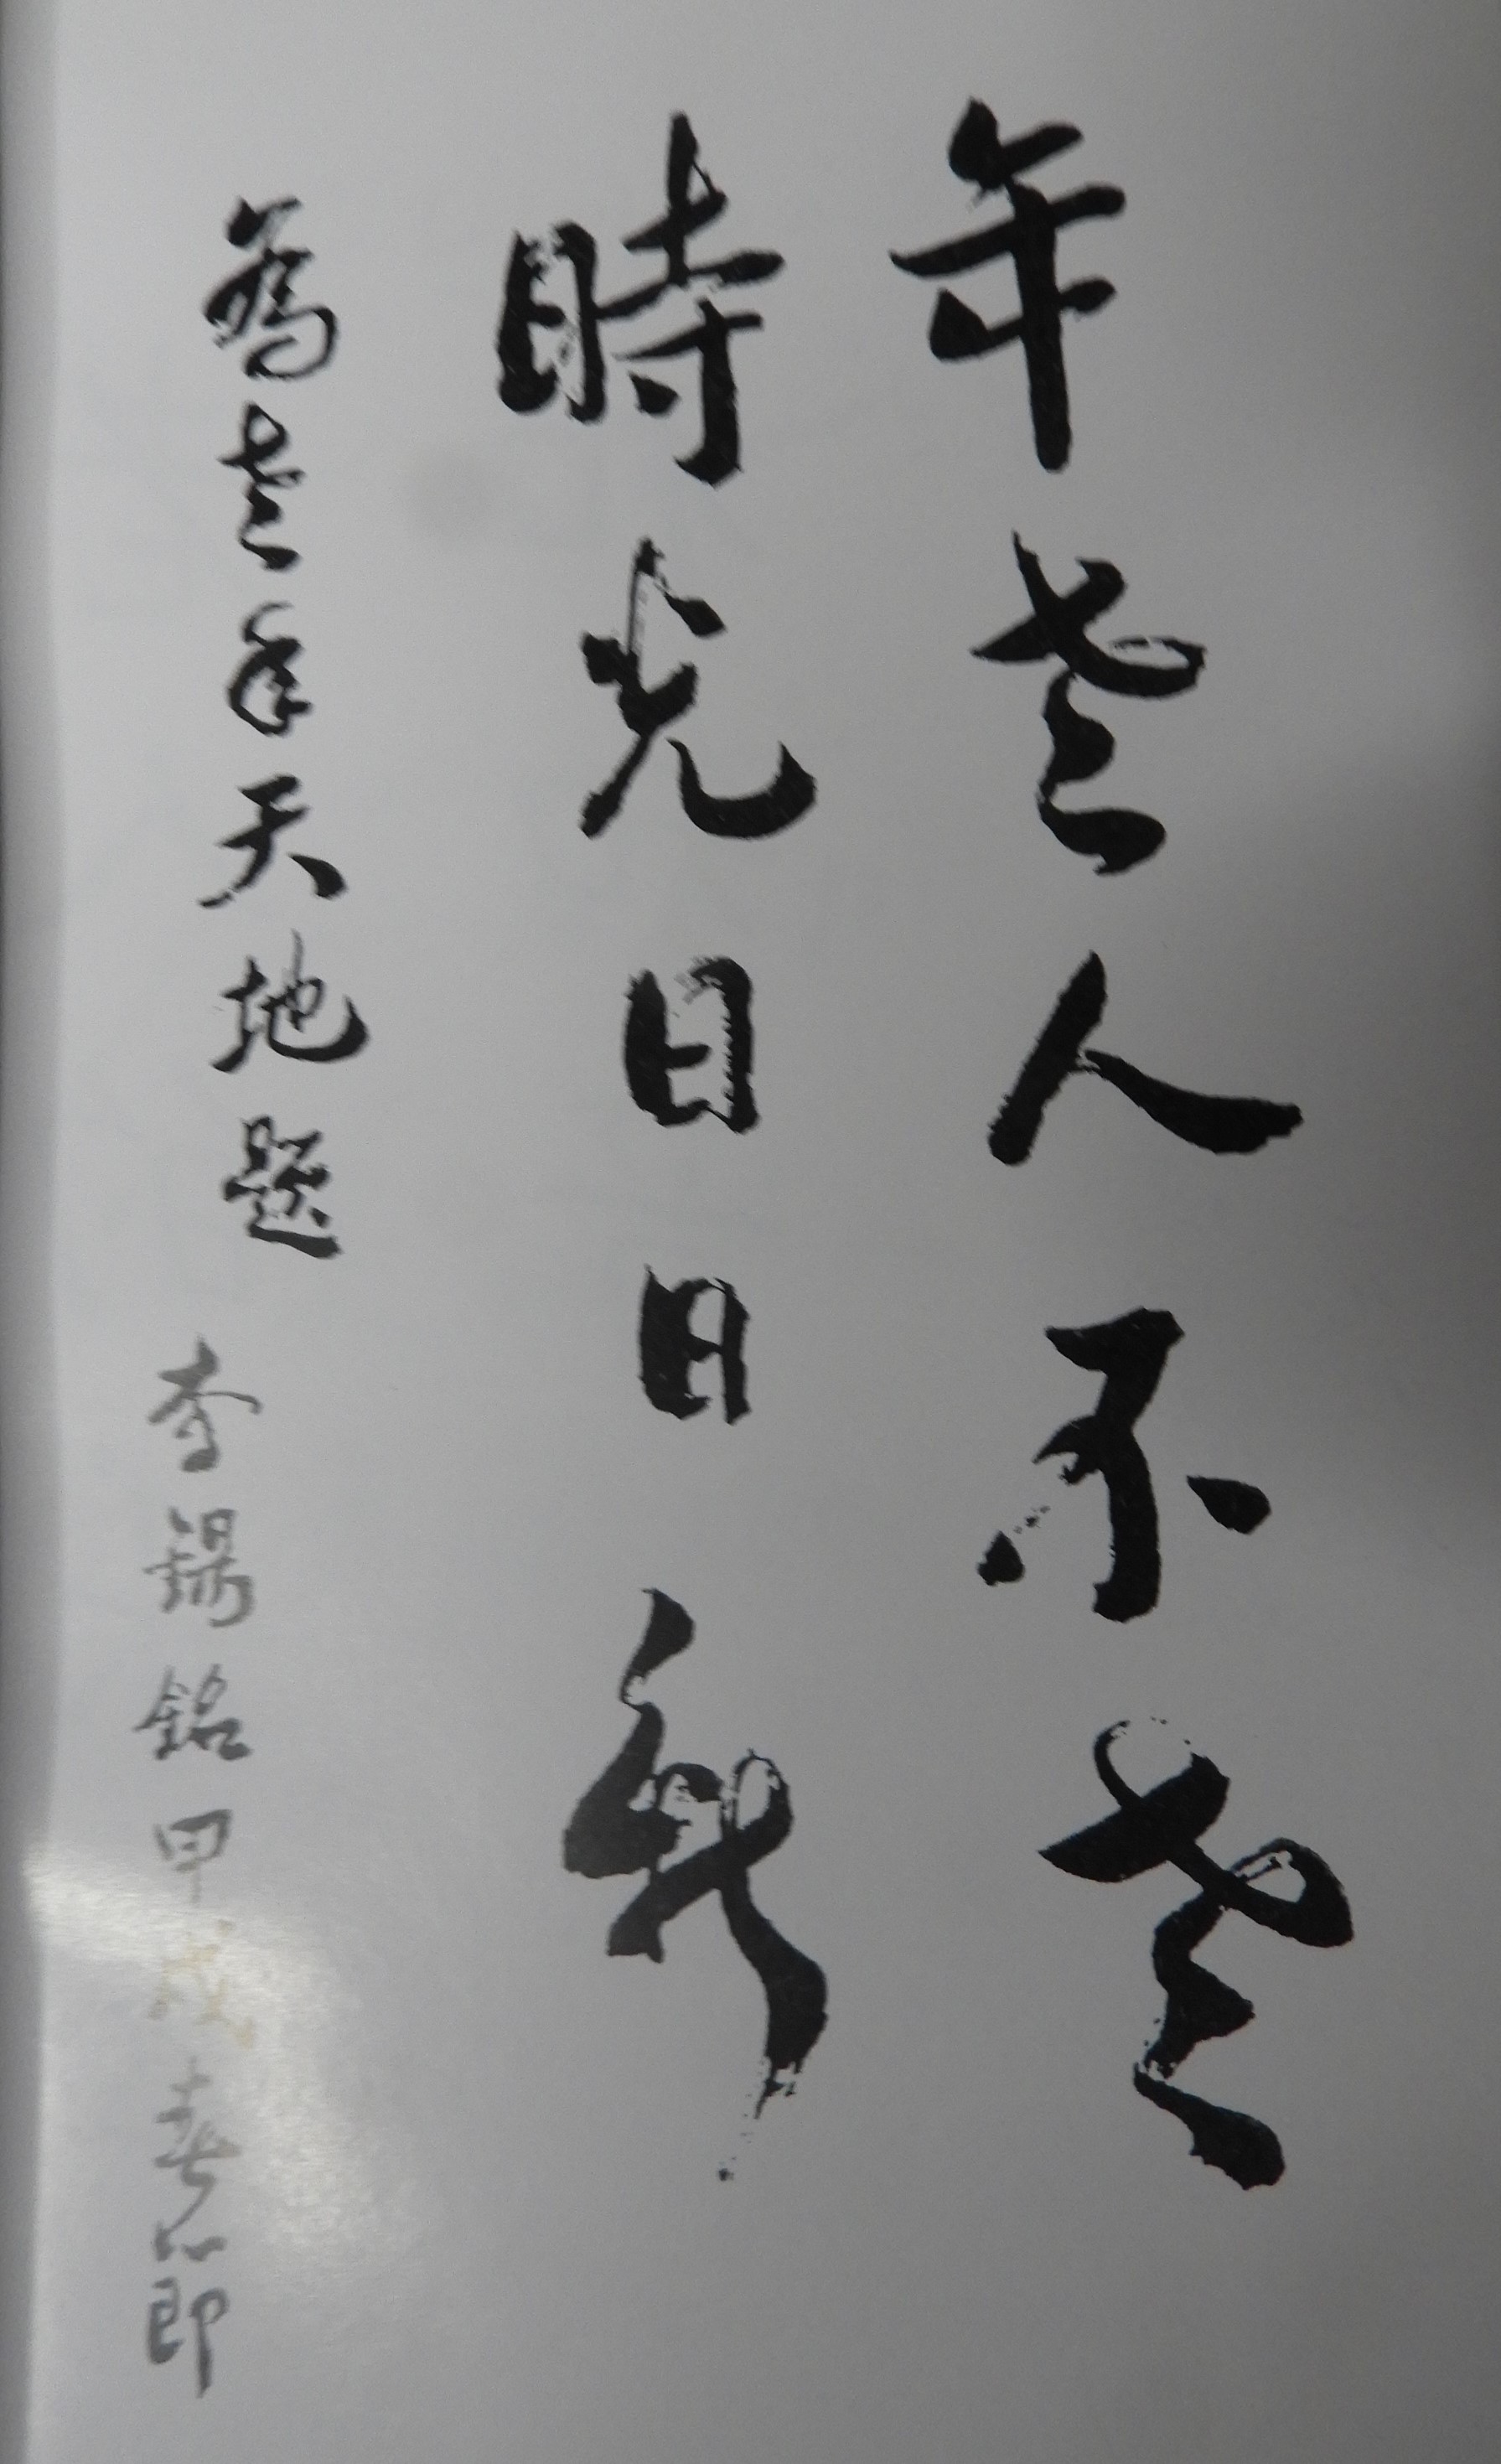 年老人不老
時光日日新
為老年天地題
李錫銘甲戌春節